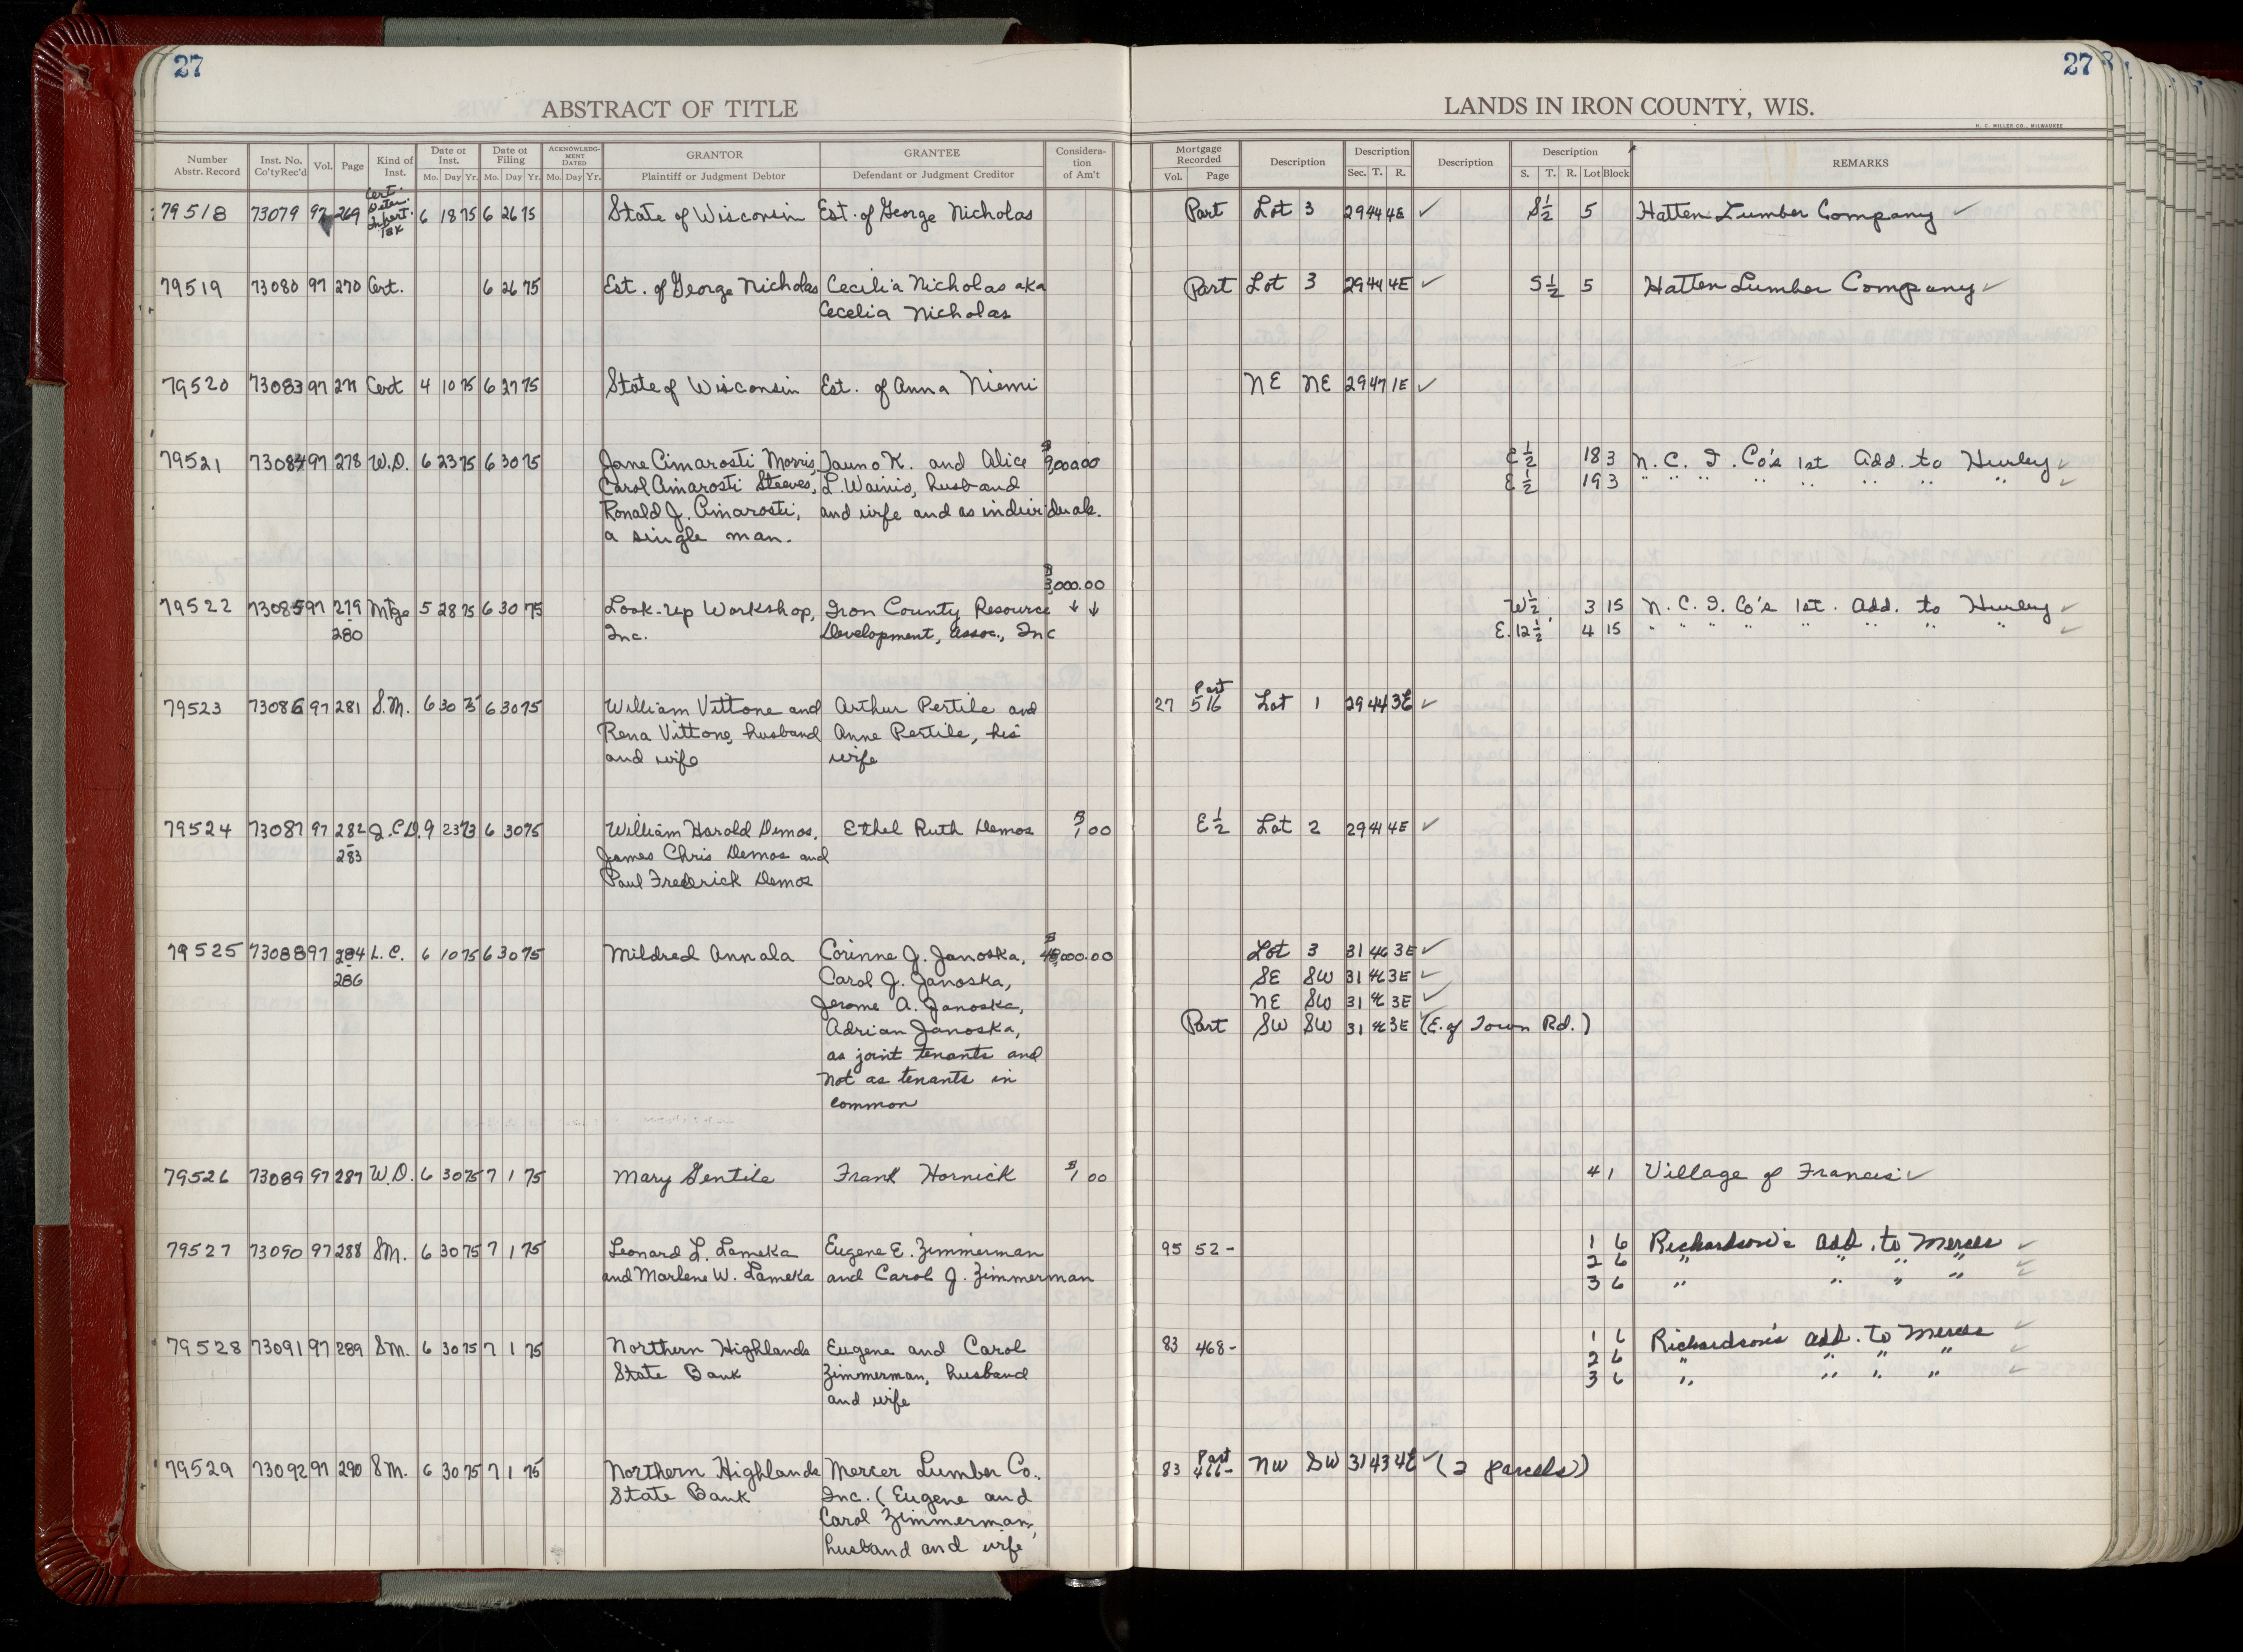 27
ABSTRACT OF TITLE
Number Abstr. Record Inst. No. Co'tyRec'd Vol. Page Kind of Inst. Date of Inst. Mo. Day Yr. Date of Filing Mo. Day Yr. ACKNOWLEDG-MENT DATED Mo. Day Yr. GRANTOR Plaintiff or Judgment Debtor GRANTEE Defendant or Judgment Creditor Considera-tion of Am't
79518 73079 97 269 Cert. Deter. Inhert. Tax 6 18 75 6 26 75 State of Wisconsin Est. of George Nicholas
79519 73080 97 270 Cert. 6 26 75 Est. of George Nicholas Cecilia Nicholas aka
Cecelia Nicholas
79520 73083 97 277 Cert 4 10 75 6 27 75 State of Wisconsin Est. of Anna Niemi
79521 73084 97 278 W.D. 6 23 75 6 30 75 Jane Cimarosti Morris, Tauno K. and Alice $9,000.00
Carol Cimarosti Steeves, L. Wainio, husband
Ronald J. Cimarosti, and wife and as individuals.
a single man.
$3,000.00
79522 73085 97 279 Mtge 5 28 75 6 30 75 Look-Up Workshop, Iron County Resource ↓ ↓
- 280 Inc. Development, Assoc., Inc
79523 73086 97 281 S.M. 6 30 75 6 30 75 William Vittone and Arthur Pertile and
Rena Vittone, husband Anne Pertile, his
and wife wife
79524 73087 97 282 Q.C.D. 9 23 73 6 30 75 William Harold Demos, Ethel Ruth Demos $1.00
- 283 James Chris Demos and
Paul Frederick Demos
79525 73088 97 284 L.C. 6 10 75 6 30 75 Mildred Annala Corinne J. Janoska, $48,000.00
- 286 Carol J. Janoska,
Jerome A. Janoska,
Adrian Janoska,
as joint tenants and
not as tenants in
common
79526 73089 97 287 W.D. 6 30 75 7 1 75 Mary Gentile Frank Hornick $1.00
79527 73090 97 288 SM. 6 30 75 7 1 75 Leonard L. Lameka Eugene E. Zimmerman
and Marlene W. Lameka and Carol J. Zimmerman
79528 73091 97 289 SM. 6 30 75 7 1 75 Northern Highlands Eugene and Carol
State Bank Zimmerman, husband
and wife
79529 73092 97 290 SM. 6 30 75 7 1 75 Northern Highlands Mercer Lumber Co.,
State Bank Inc. (Eugene and
Carol Zimmerman,
husband and wife
27
LANDS IN IRON COUNTY, WIS.
H. C. MILLER CO., MILWAUKEE
Mortgage Recorded Vol. Page Description Description Sec. T. R. Description Description S. T. R. Lot Block REMARKS
Part Lot 3 29 44 4E ✓ S½ 5 Hatten Lumber Company ✓
Part Lot 3 29 44 4E ✓ S½ 5 Hatten Lumber Company ✓
NE NE 29 47 1E ✓
E½ 18 3 N. C. I. Co's 1st Add. to Hurley ✓
E½ 19 3 " " " " " " " " ✓
W½ 3 15 N. C. I. Co's 1st. Add. to Hurley ✓
E. 12½' 4 15 " " " " " " " " ✓
27 Part 516 Lot 1 29 44 3E ✓
E½ Lot 2 29 44 4E ✓
Lot 3 31 46 3E ✓
SE SW 31 46 3E ✓
NE SW 31 46 3E ✓
Part SW SW 31 46 3E (E. of Town Rd.)
4 1 Village of Francis ✓
95 52- 1 6 Richardson's Add. to Mercer ✓
2 6 " " " " ✓
3 6 " " " " ✓
83 468- 1 6 Richardson's Add. to Mercer ✓
2 6 " " " " ✓
3 6 " " " " ✓
83 Part 466- NW SW 31 43 4E ✓ (2 parcels)